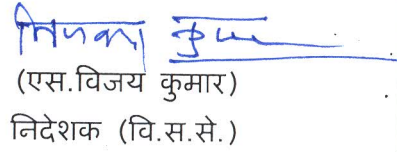 कुमार
(एस.विजय कुमार)
निदेशक (वि.स.से.)